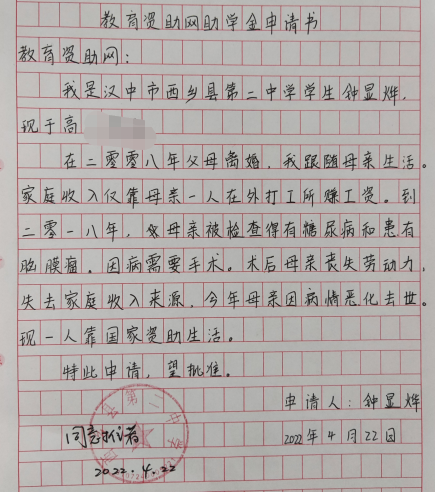 教育资助网助学金申请书
教育资助网：
我是汉中市西乡县第二中学学生钟显烨，
现于高
在二零零八年父母离婚，我跟随母亲生活。
家庭收入仅靠母亲一人在外打工所赚工资。到
二零一八年，母亲被检查得有糖尿病和患有
脑膜瘤。因病需要手术。术后母亲丧失劳动力，
失去家庭收入来源，今年母亲因病情恶化去世。
现一人靠国家资助生活。
特此申请，望批准。
申请人：钟显烨
同意推荐
2022年4月22日
2022.4.22